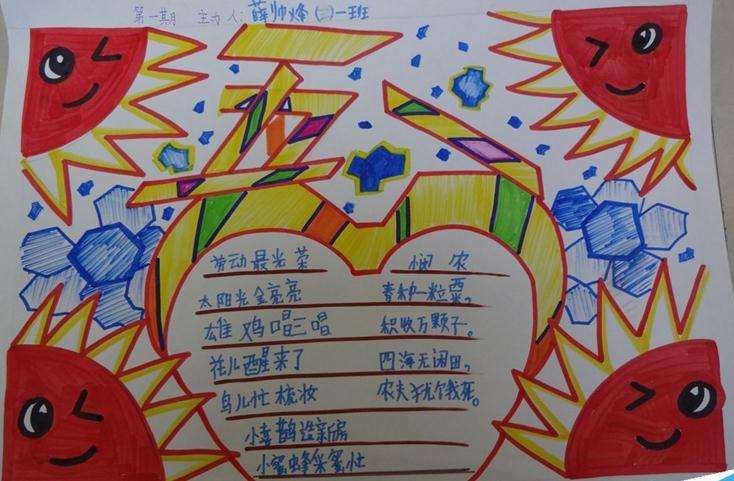 第一期 主办人:薛帅烽 (二)一班
五一
劳动最光荣
太阳光金亮亮
雄鸡唱三唱
花儿醒来了
鸟儿忙梳妆
小喜鹊造新房
小蜜蜂采蜜忙
悯 农
春种一粒粟,
积收万颗子。
四海无闲田,
农夫犹饿死。